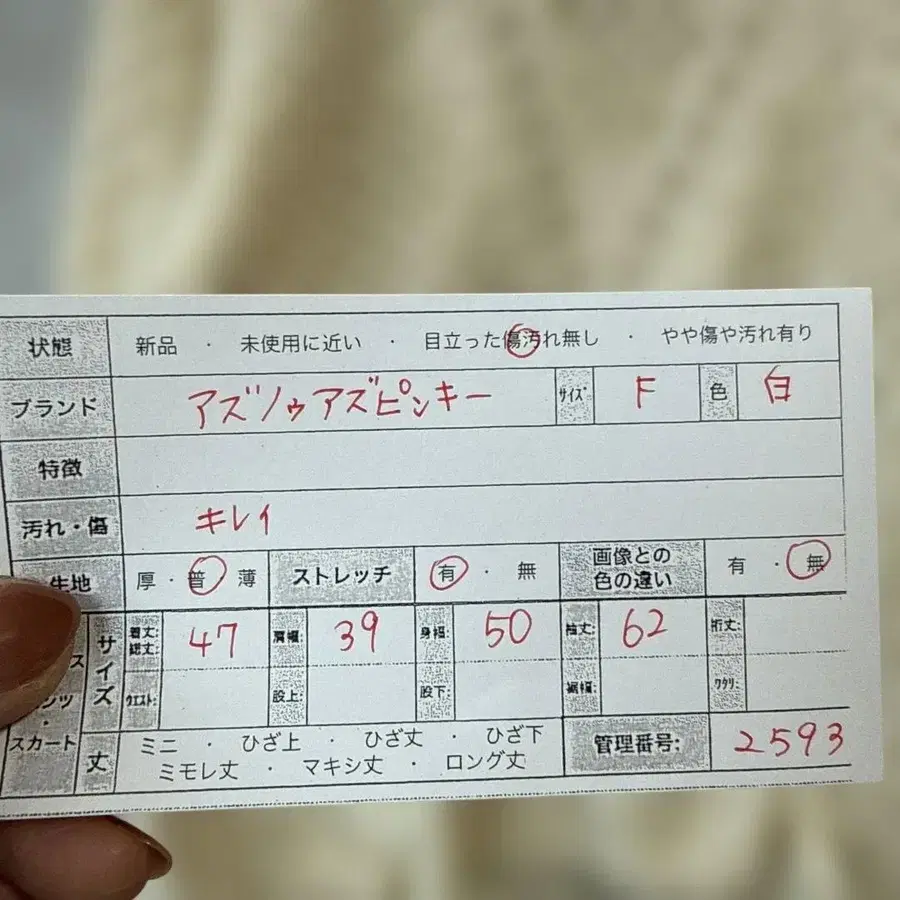 状態 新品 ・ 未使用に近い ・ 目立った傷汚れ無し ・ やや傷や汚れ有り
ブランド アズノゥアズピンキー サイズ F 色 白
特徴
汚れ・傷 キレイ
生地 厚・普 薄 ストレッチ 有 ・ 無 画像との色の違い 有 ・ 無
サイズ 着丈: 総丈: 47 肩幅: 39 身幅: 50 袖丈: 62 裄丈:
ウエスト: 股上: 股下: 裾幅: ワタリ:
スカート 丈 ミニ ・ ひざ上 ・ ひざ丈 ・ ひざ下
ミモレ丈 ・ マキシ丈 ・ ロング丈
管理番号: 2593